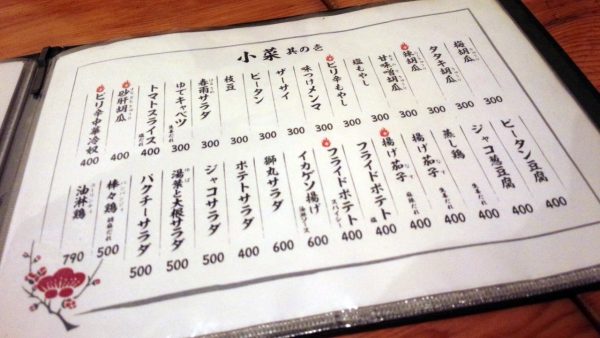 小菜 其の壱
梅胡瓜 300
タタキ胡瓜 300
辣胡瓜 300
甘味噌胡瓜 300
塩もやし 300
ピリ辛もやし 300
味つけメンマ 300
ザーサイ 300
ピータン 300
枝豆 300
春雨サラダ 300
ゆでキャベツ 300
トマトスライス 400
砂肝胡瓜 400
ピリ辛中華冷奴 400
ピータン豆腐 400
ジャコ葱豆腐 400
蒸し鶏 400
揚げ茄子 400
揚げ茄子 400
フライドポテト 塩 400
フライドポテト スパイシー 400
イカゲソ揚げ 600
獅丸サラダ 600
ポテトサラダ 400
ジャコサラダ 500
湯葉と大根サラダ 500
パクチーサラダ 500
棒々鶏 500
油淋鶏 790